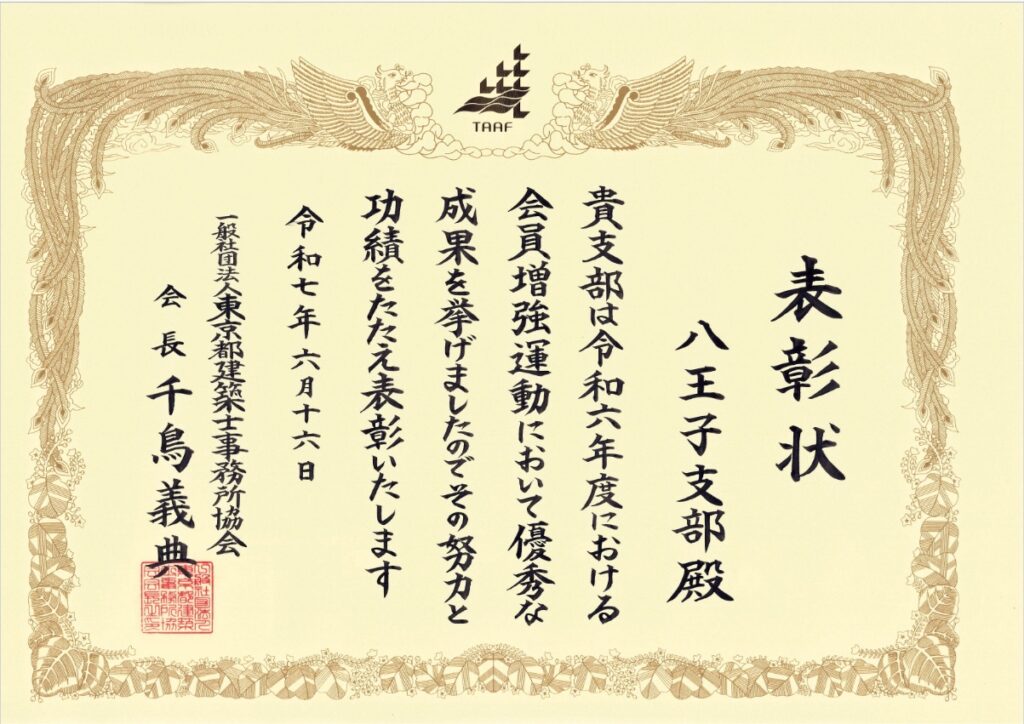 TAAF
表彰状
八王子支部殿
貴支部は令和六年度における
会員増強運動において優秀な
成果を挙げましたのでその努力と
功績をたたえ表彰いたします
令和七年六月十六日
一般社団法人東京都建築士事務所協会
会長 千鳥義典